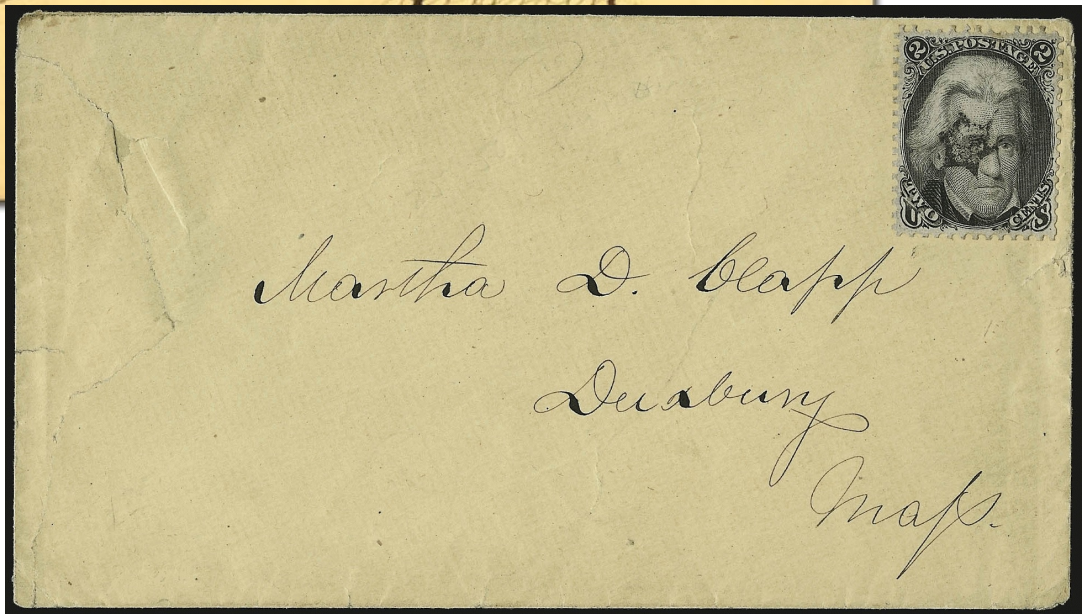 2 U.S. POSTAGE 2
TWO CENTS
U S
Martha D. Clapp
Duxbury
Mass.